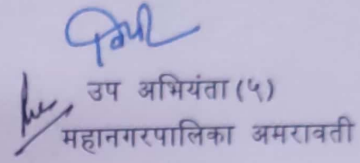 उप अभियंता (५)
महानगरपालिका अमरावती